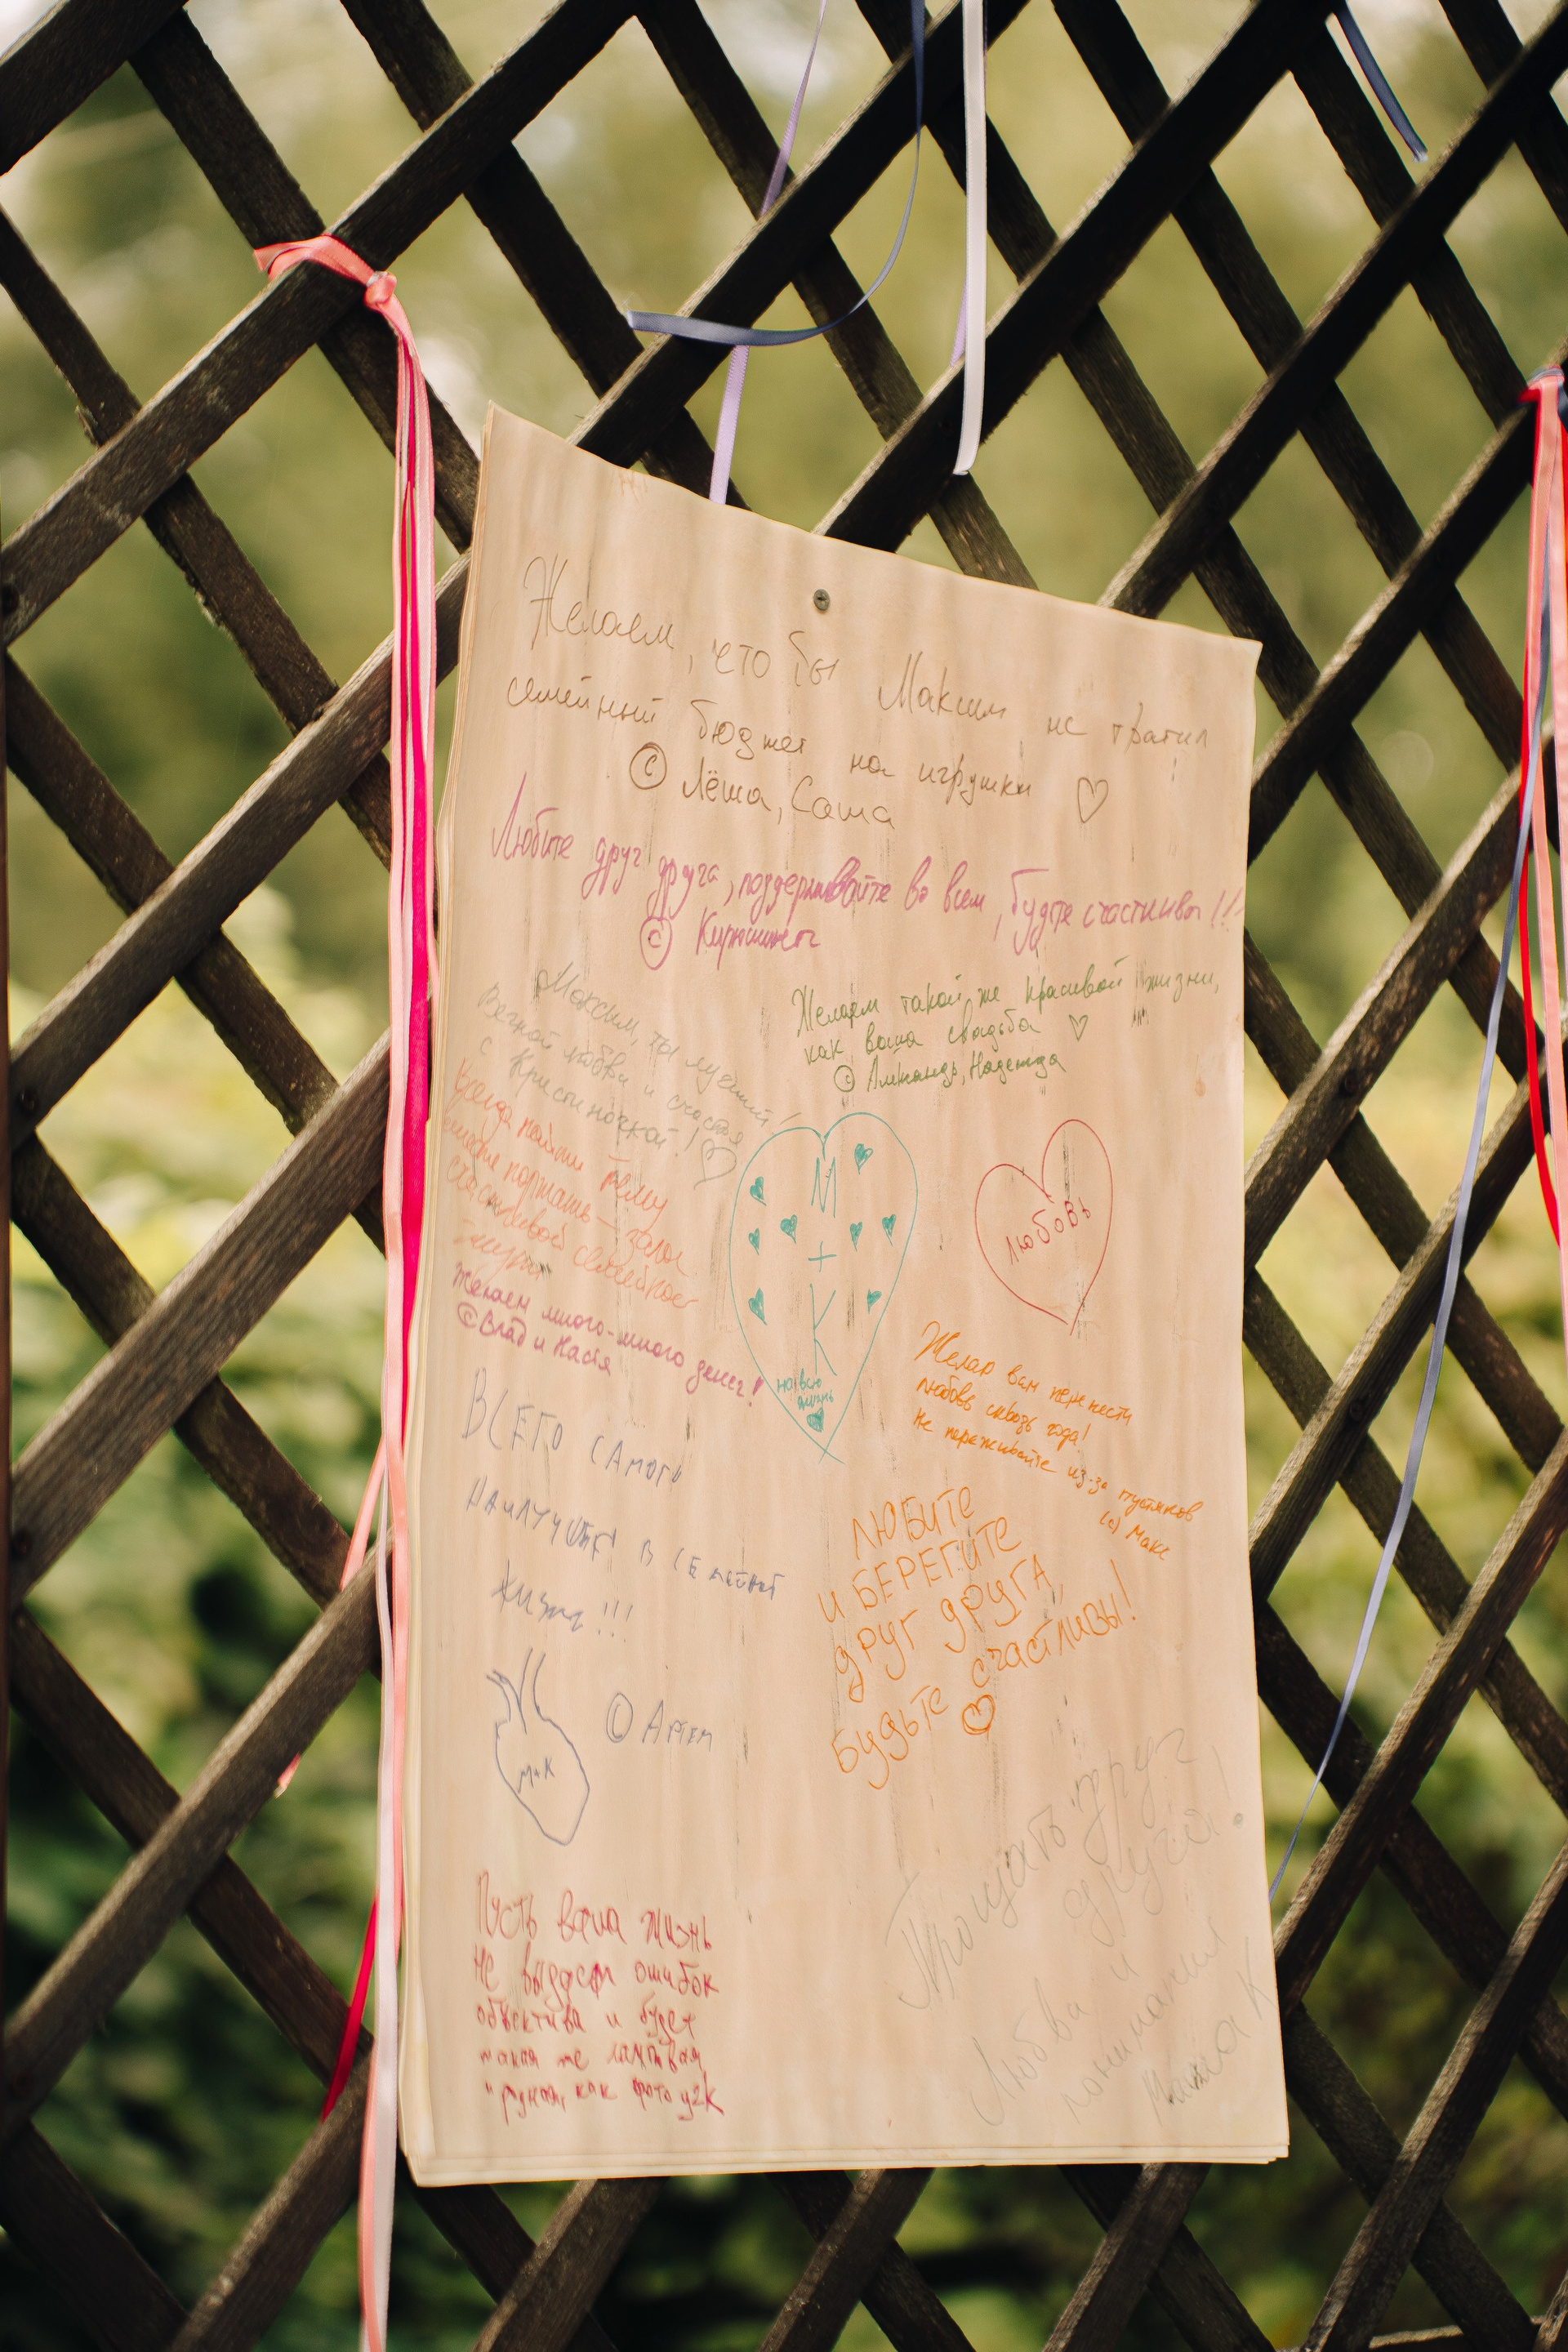 Желаем, что бы Максим не тратил
семейный бюджет на игрушки
© Лёша, Саша
Любите друг друга, поддерживайте во всем, будте счастливы!!!
©
Желаем такой же красивой жизни,
как ваша свадьба
© Александр, Надежда
Максим, ты лучший!
Вечной любви и счастья
с Кристиночкой!
Всегда найти тему
вместе поржать – залог
счастливой семейной
жизни
Желаем много-много денег!
© Влад и Настя
М
+
К
на всю
жизнь
Любовь
Желаю вам пенести
любовь сквозь года!
Не переживайте из-за пустяков
(с) Макс
ВСЕГО САМОГО
НАИЛУЧШЕГО В СЕМЕЙНОЙ
ЖИЗНИ!!!
М+К
© Артём
ЛЮБИТЕ
И БЕРЕГИТЕ
ДРУГ ДРУГА,
БУДЬТЕ СЧАСТЛИВЫ!
Пусть ваша жизнь
не выдаст ошибок
объектива и будет
такая же ламповая
и как фото у2К
Прощать друг
друга!
Любви и
понимания
Маша К